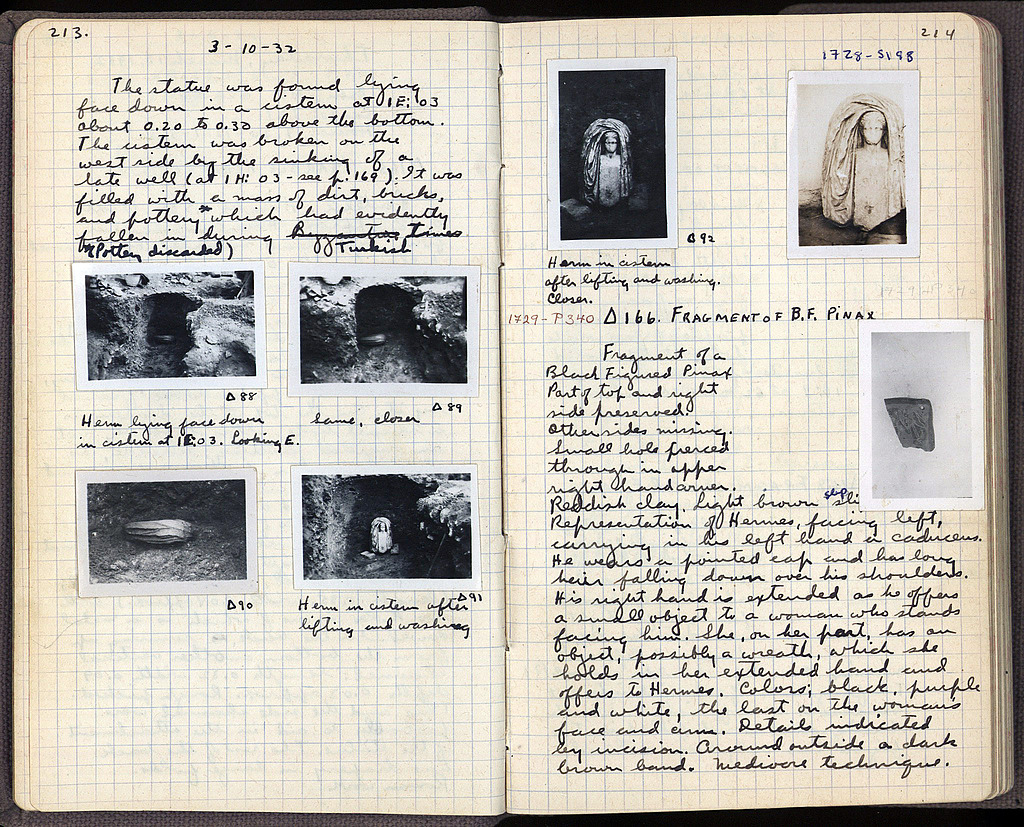 213.
3-10-32
The statue was found lying
face down in a cistern at 1E:03
about 0.20 to 0.30 above the bottom.
The cistern was broken on the
west side by the sinking of a
late well (at 1H:03 - see p. 169). It was
filled with a mass of dirt, bricks,
and pottery* which had evidently
fallen in during Byzantine times
*(Pottery discarded) Turkish
Δ88
Herm lying face down
in cistern at 1E:03. Looking E.
Δ89
Same, closer
Δ90
Δ91
Herm in cistern after
lifting and washing
214
1728-S198
Δ92
Herm in cistern
after lifting and washing.
Closer.
1729-P340
1729-P340 Δ166. FRAGMENT OF B.F. PINAX
Fragment of a
Black Figured Pinax
Part of top and right
side preserved.
Other sides missing.
Small hole pierced
through in upper
right hand corner.
Reddish clay. Light brown slip
Representation of Hermes, facing left,
carrying in his left hand a caduceus.
He wears a pointed cap and has long
hair falling down over his shoulders.
His right hand is extended as he offers
a small object to a woman who stands
facing him. She, on her part, has an
object, possibly a wreath, which she
holds in her extended hand and
offers to Hermes. Colors; black, purple
and white, the last on the woman's
face and arm. Details indicated
by incision. Around outside a dark
brown band. Mediocre technique.